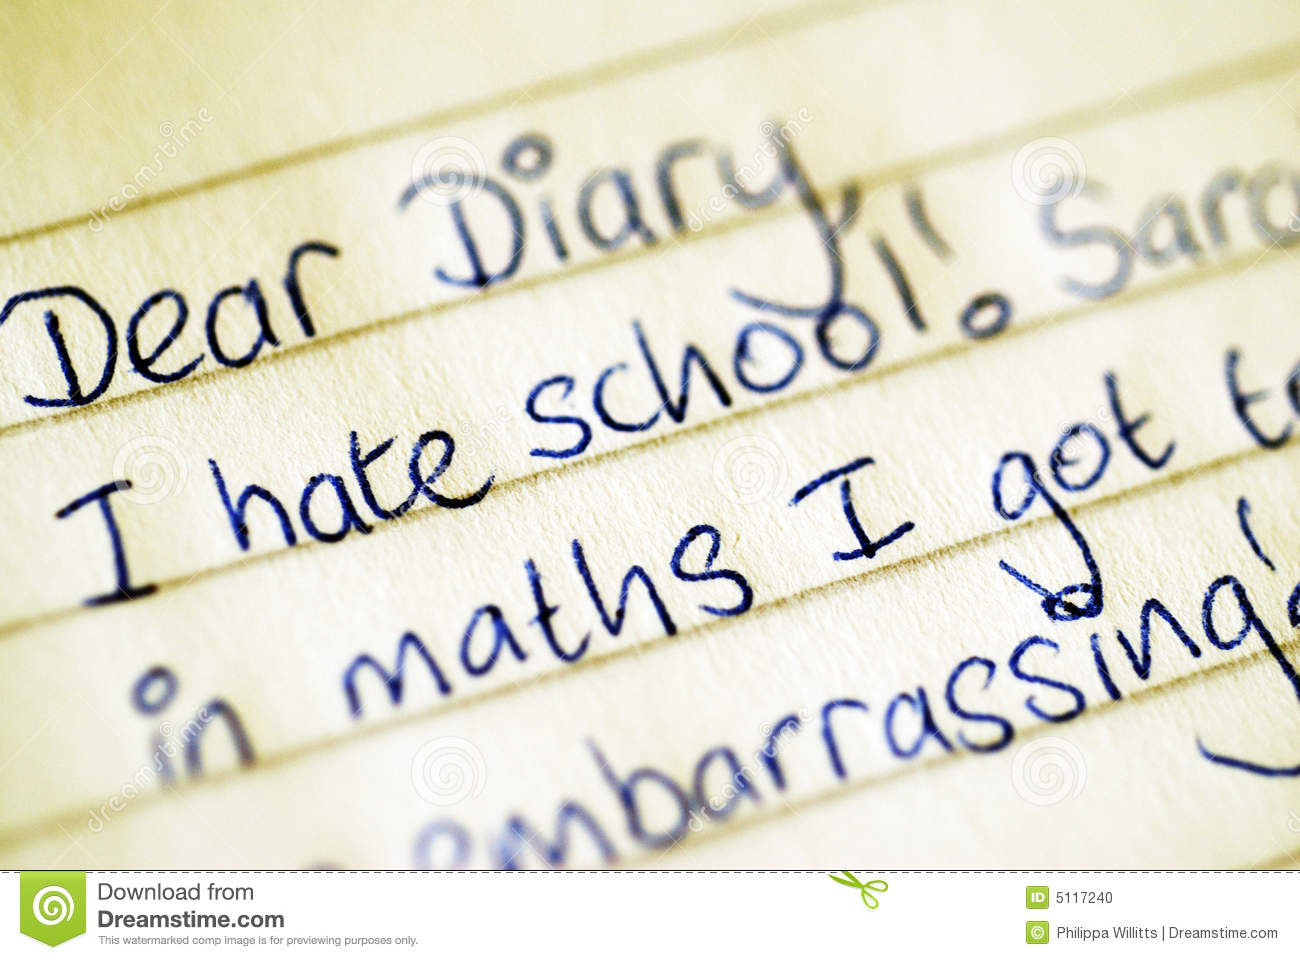 Dear Diary,
I hate school!!
in maths I got
embarrassing!
Download from
Dreamstime.com
This watermarked comp image is for previewing purposes only.
ID 5117240
© Philippa Willitts | Dreamstime.com